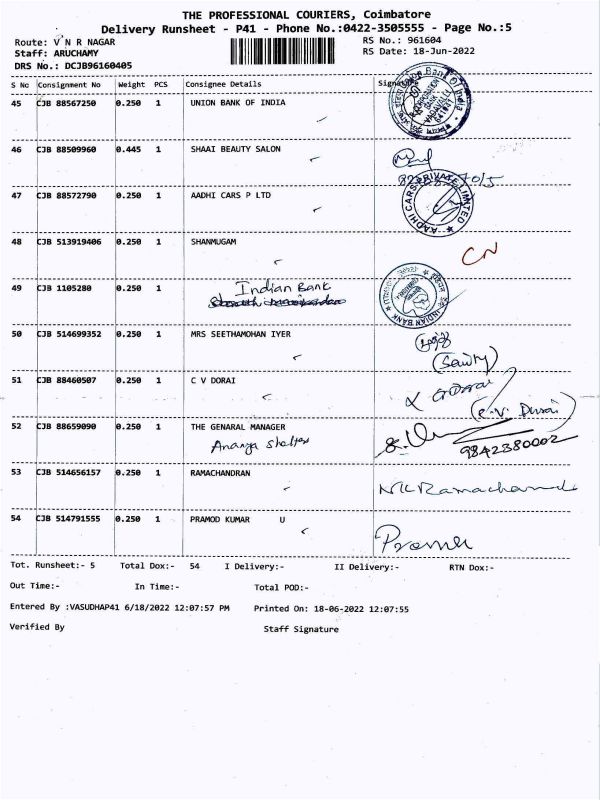 THE PROFESSIONAL COURIERS, Coimbatore
Delivery Runsheet - P41 - Phone No.:0422-3505555 - Page No.:5
Route: V N R NAGAR RS No.: 961604
Staff: ARUCHAMY RS Date: 18-Jun-2022
DRS No.: DCJB96160405
S No Consignment No Weight PCS Consignee Details Signature
45 CJB 88567250 0.250 1 UNION BANK OF INDIA
46 CJB 88509960 0.445 1 SHAAI BEAUTY SALON
47 CJB 88572790 0.250 1 AADHI CARS P LTD AADHI CARS PRIVATE LIMITED
48 CJB 513919406 0.250 1 SHANMUGAM CN
49 CJB 1105280 0.250 1 Indian Bank INDIAN BANK
50 CJB 514699352 0.250 1 MRS SEETHAMOHAN IYER
51 CJB 88460507 0.250 1 C V DORAI (C.V. Durai)
52 CJB 88659090 0.250 1 THE GENARAL MANAGER
Ananya Shelters 9842380002
53 CJB 514656157 0.250 1 RAMACHANDRAN
54 CJB 514791555 0.250 1 PRAMOD KUMAR U
Tot. Runsheet:- 5 Total Dox:- 54 I Delivery:- II Delivery:- RTN Dox:-
Out Time:- In Time:- Total POD:-
Entered By :VASUDHAP41 6/18/2022 12:07:57 PM Printed On: 18-06-2022 12:07:55
Verified By Staff Signature